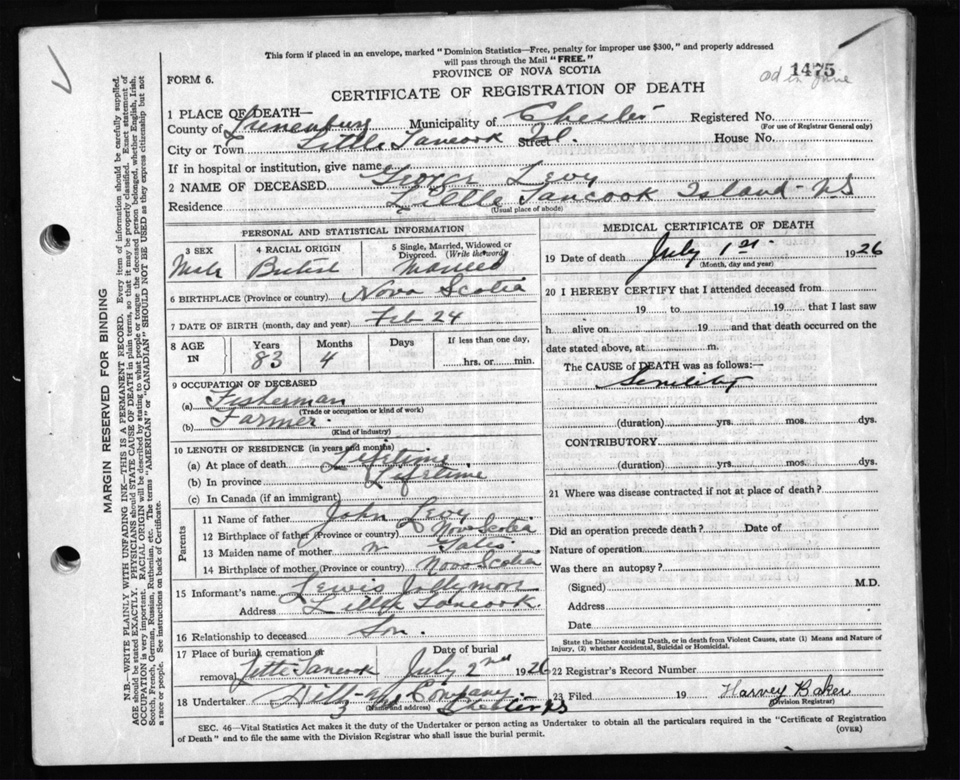 This form if placed in an envelope, marked "Dominion Statistics—Free, penalty for improper use $300," and properly addressed
will pass through the Mail "FREE."
FORM 6.
PROVINCE OF NOVA SCOTIA
1475
CERTIFICATE OF REGISTRATION OF DEATH
1 PLACE OF DEATH—
County of Lunenburg Municipality of Chester Registered No.
(For use of Registrar General only)
City or Town Little Tancook Isl. Street House No.
If in hospital or institution, give name
2 NAME OF DECEASED George Levy
Residence Little Tancook Island - NS
(Usual place of abode)
PERSONAL AND STATISTICAL INFORMATION
3 SEX 4 RACIAL ORIGIN 5 Single, Married, Widowed or Divorced. (Write the word)
Male British Married
6 BIRTHPLACE (Province or country) Nova Scotia
7 DATE OF BIRTH (month, day and year) Feb 24
8 AGE IN Years Months Days If less than one day,
83 4 hrs. or min.
9 OCCUPATION OF DECEASED
(a) Fisherman
(Trade or occupation or kind of work)
(b) Farmer.
(Kind of industry)
10 LENGTH OF RESIDENCE (in years and months)
(a) At place of death Lifetime
(b) In province Lifetime
(c) In Canada (if an immigrant)
Parents
11 Name of father John Levy
12 Birthplace of father (Province or country) Nova Scotia
13 Maiden name of mother
14 Birthplace of mother (Province or country) Nova Scotia
15 Informant's name Lewis
Address Little Tancook.
16 Relationship to deceased Son.
17 Place of burial, cremation or removal Little Tancook
Date of burial July 2nd 1926
18 Undertaker Company.
(Name and address)
MEDICAL CERTIFICATE OF DEATH
19 Date of death July 1st. 1926
(Month, day and year)
20 I HEREBY CERTIFY that I attended deceased from
19 to 19 that I last saw
h alive on 19 and that death occurred on the
date stated above, at m.
The CAUSE of DEATH was as follows:—
Senility
(duration) yrs. mos. dys.
CONTRIBUTORY
(duration) yrs. mos. dys.
21 Where was disease contracted if not at place of death?
Did an operation precede death? Date of
Nature of operation
Was there an autopsy?
(Signed) M.D.
Address
Date
State the Disease causing Death, or in death from Violent Causes, state (1) Means and Nature of
Injury, (2) whether Accidental, Suicidal or Homicidal.
22 Registrar's Record Number
23 Filed 19 Harvey Baker
(Division Registrar)
SEC. 46—Vital Statistics Act makes it the duty of the Undertaker or person acting as Undertaker to obtain all the particulars required in the "Certificate of Registration
of Death" and to file the same with the Division Registrar who shall issue the burial permit.
(OVER)
MARGIN RESERVED FOR BINDING
N.B.—WRITE PLAINLY WITH UNFADING INK—THIS IS A PERMANENT RECORD. Every item of information should be carefully supplied.
AGE should be stated EXACTLY. PHYSICIANS should STATE CAUSE OF DEATH in plain terms, so that it may be properly classified. Exact statement of
OCCUPATION is very important. RACIAL ORIGIN will be described by stating to what people or tongue the deceased person belonged, whether English, Irish,
Scotch, French, German, Russian, Ruthenian, etc. The terms "AMERICAN" or "CANADIAN" SHOULD NOT BE USED as they express citizenship but not
a race or people. See instructions on back of Certificate.